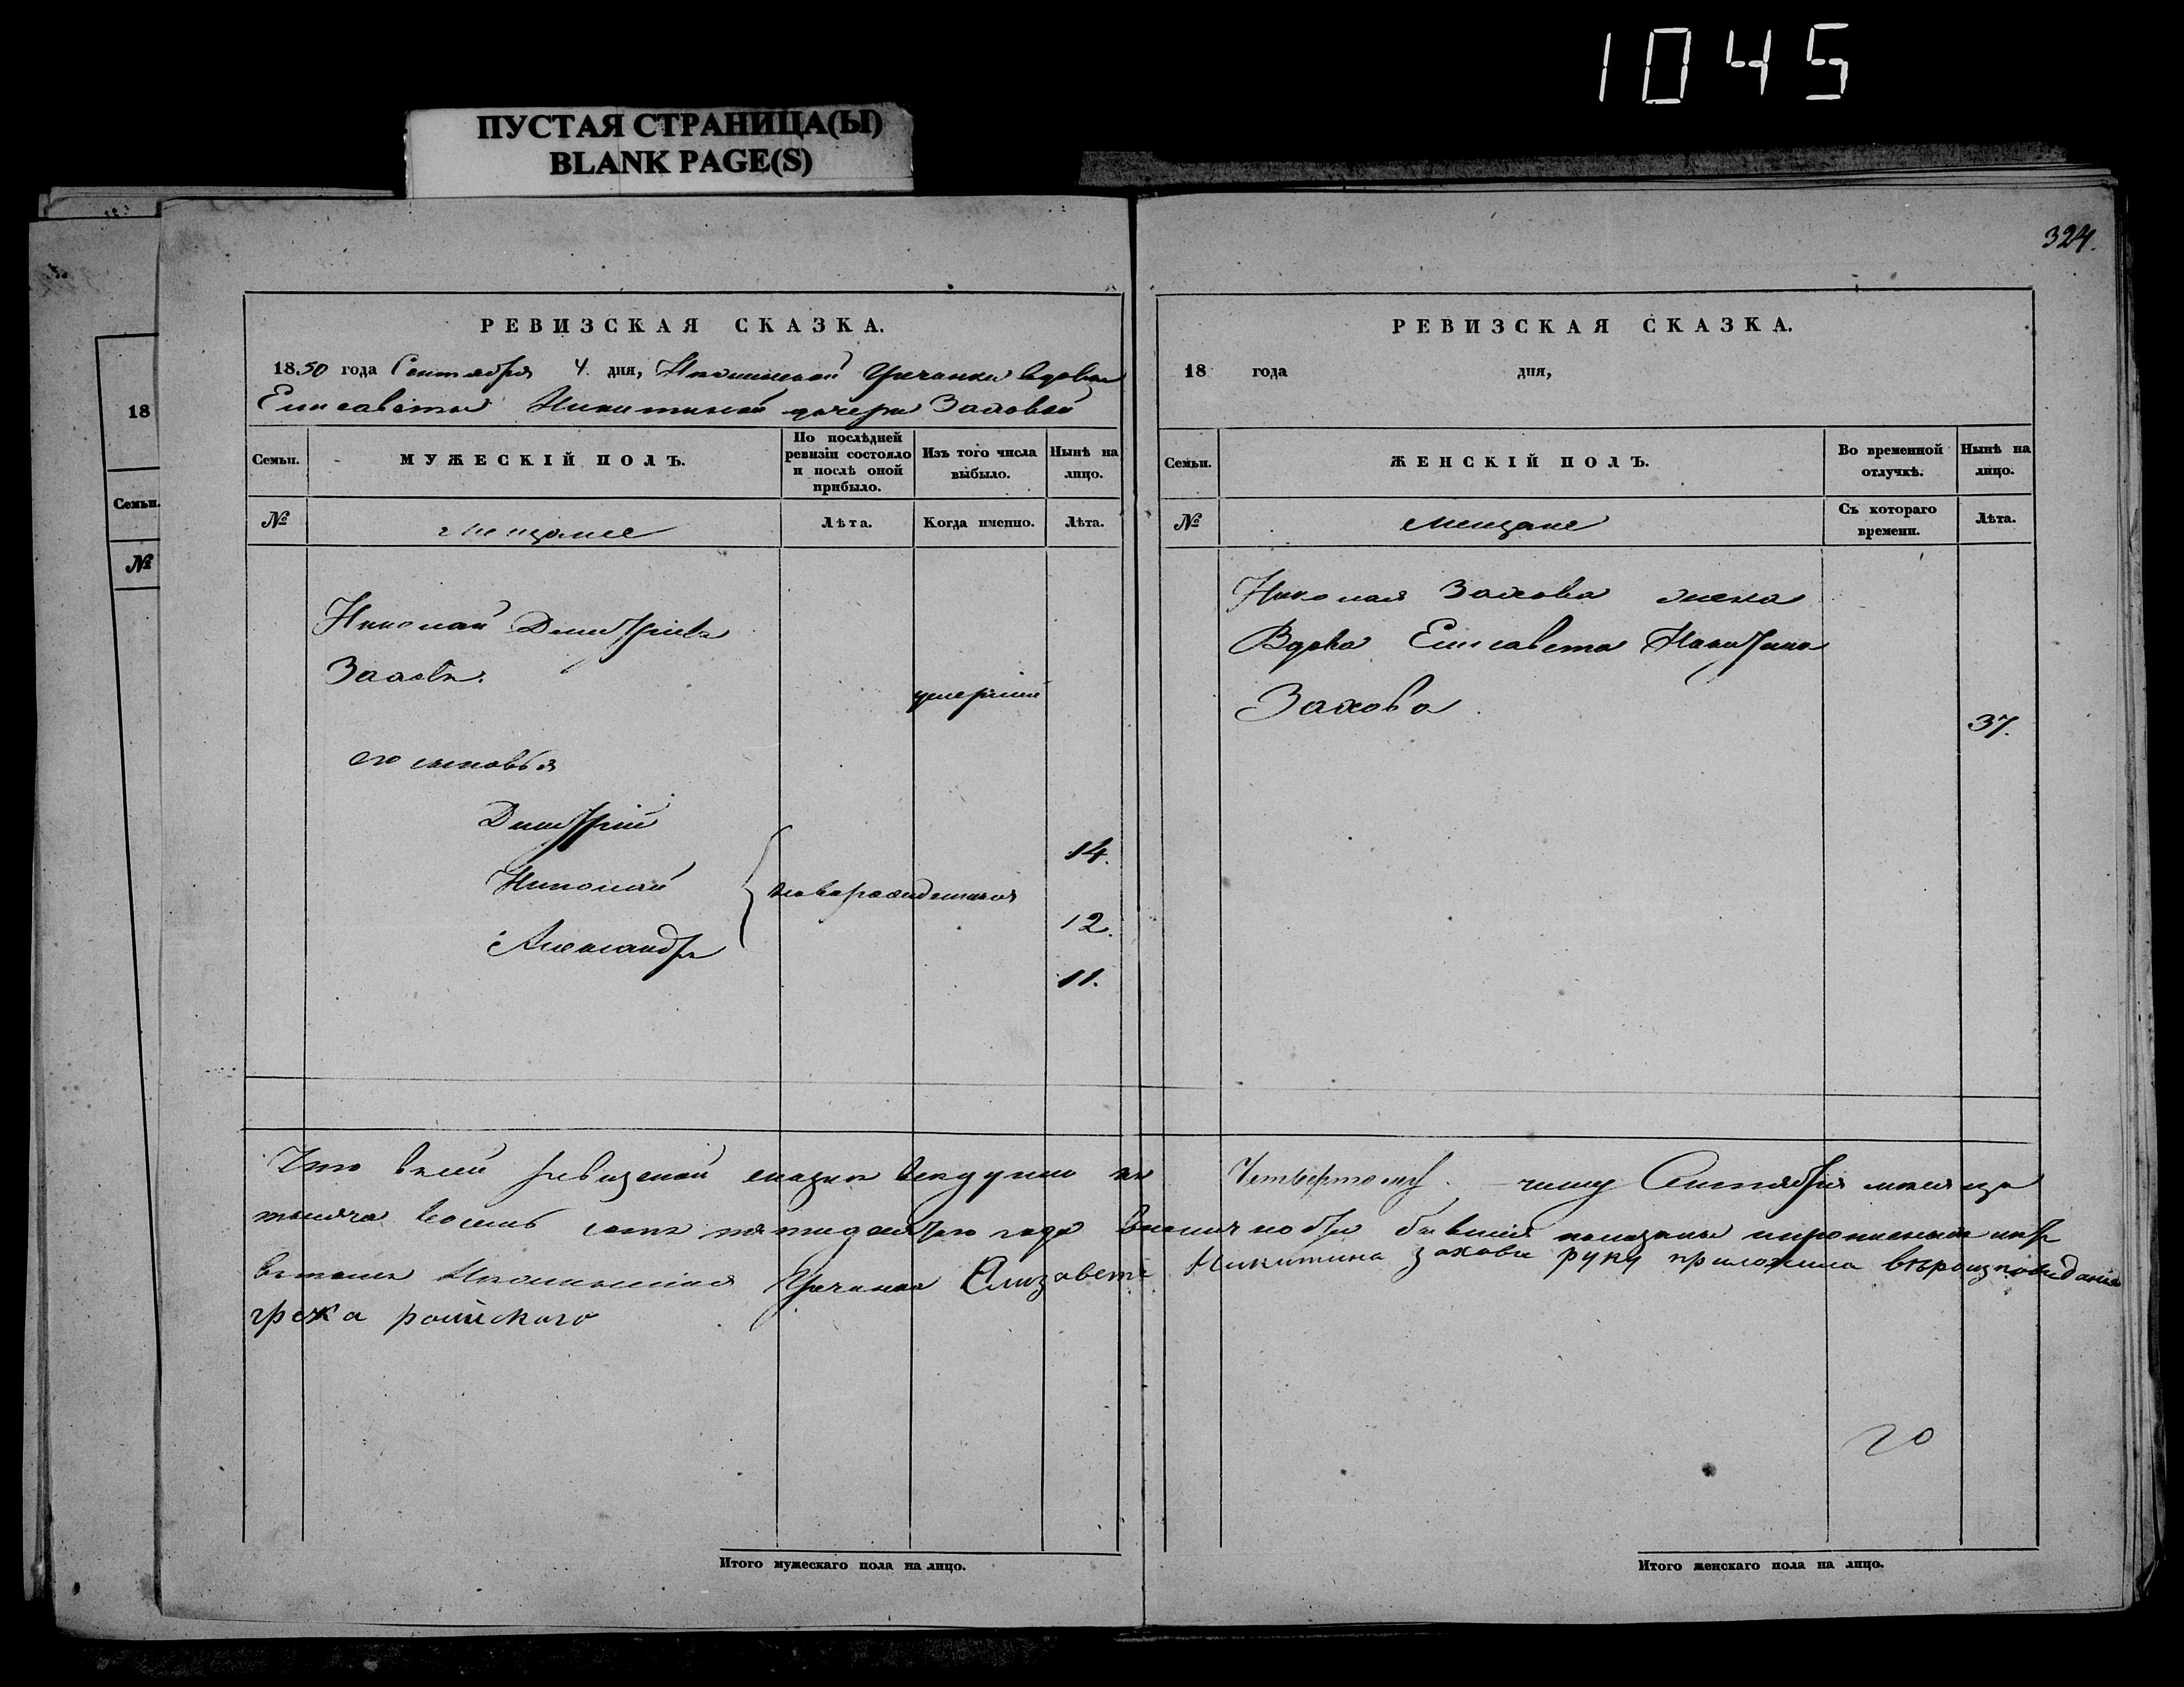 1045
ПУСТАЯ СТРАНИЦА(Ы)
BLANK PAGE(S)
324.
18
Семьи.
№
РЕВИЗСКАЯ СКАЗКА.
1850 года Сентября 4 дня, вдовы
Елисаветы Никитиной дочери Заховой
Семьи.
МУЖЕСКІЙ ПОЛЪ.
По послѣдней ревизіи состояло и послѣ оной прибыло.
Изъ того числа выбыло.
Нынѣ на лицо.
№
мещане
Лѣта.
Когда именно.
Лѣта.
Николай Дмитріевъ
Заховъ.
умерший
его сыновья
Димитрій
14.
Николай
новорожденныя
12.
Александръ
11.
РЕВИЗСКАЯ СКАЗКА.
18 года дня,
Семьи.
ЖЕНСКІЙ ПОЛЪ.
Во временной отлучкѣ.
Нынѣ на лицо.
№
мещане
Съ котораго времени.
Лѣта.
Николая Захова жена
Вдова Елисавета Никитина
Захова
37.
Что въ сей ревизской сказке все души къ Четвертому числу Сентября месяца
тысяча восемь сотъ пятидесятого года бывшия показаны
въ томъ Елизавета Никитина захова руку приложила
грека
20
Итого мужескаго пола на лицо.
Итого женскаго пола на лицо.